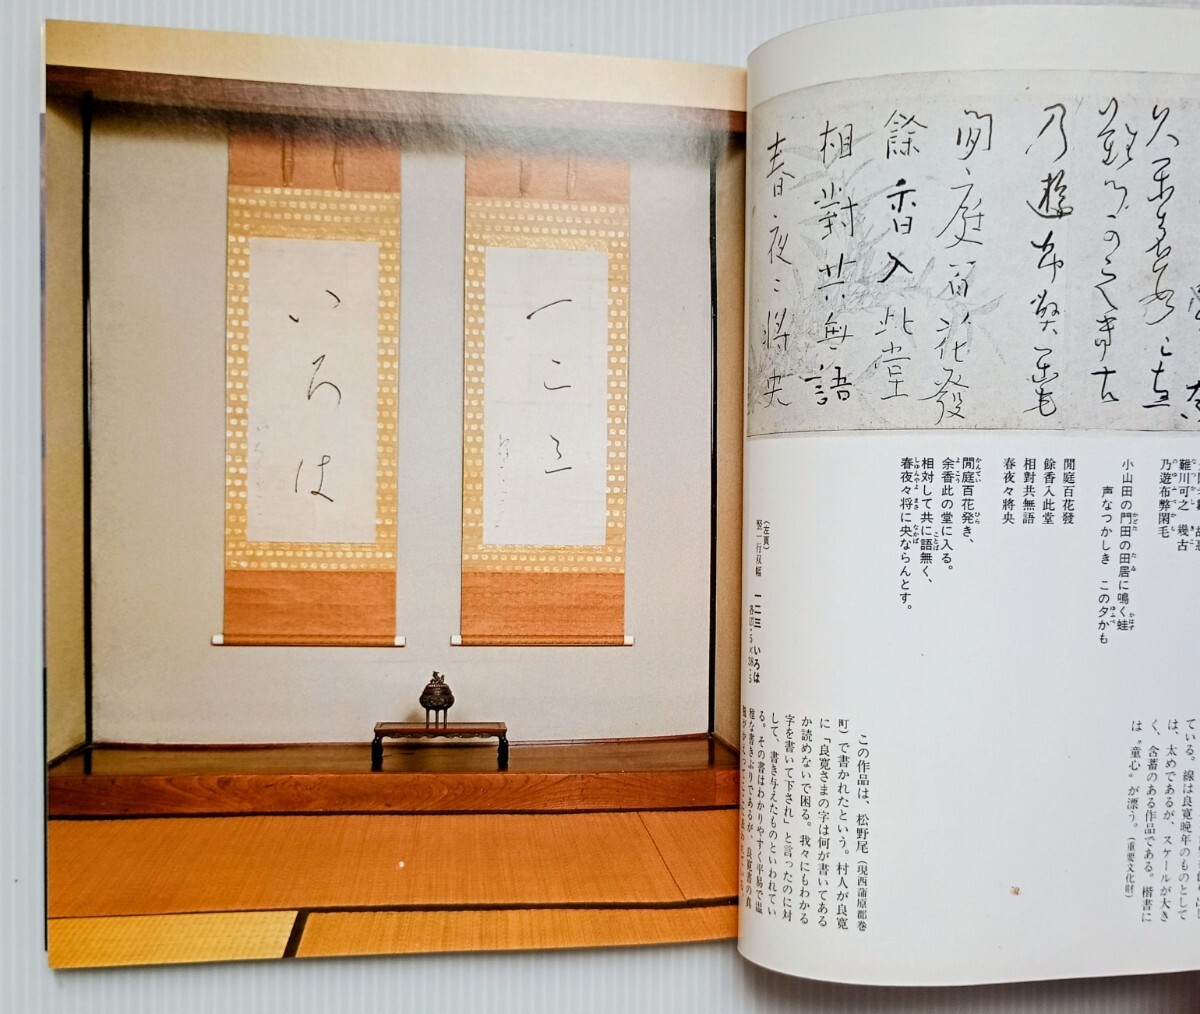 難可之幾古
乃遊布弊閑毛
閒庭百花發
餘香入此堂
相對共無語
春夜〻將央
難川可之 幾古
乃遊布弊閑毛
小山田の門田の田居に鳴く蛙
声なつかしき この夕かも
閒庭百花發
餘香入此堂
相對共無語
春夜々將央
閒庭百花発き、
余香此の堂に入る。
相対して共に語無く、
春夜々将に央ならんとす。
ている。線は良寛晩年のものとして
は、太めであるが、スケールが大き
く、含蓄のある作品である。楷書に
は〝童心〟が漂う。(重要文化財)
(左頁)
竪一行双幅 一二三 いろは
この作品は、松野尾(現西蒲原郡巻
町)で書かれたという。村人が良寛
に「良寛さまの字は何が書いてある
か読めないで困る。我々にもわかる
字を書いて下され」と言ったのに対
して、書き与えたものといわれてい
る。その書はわかりやすく平易で温
雅な書きぶりであるが、良寛書の真
一二三
いろは